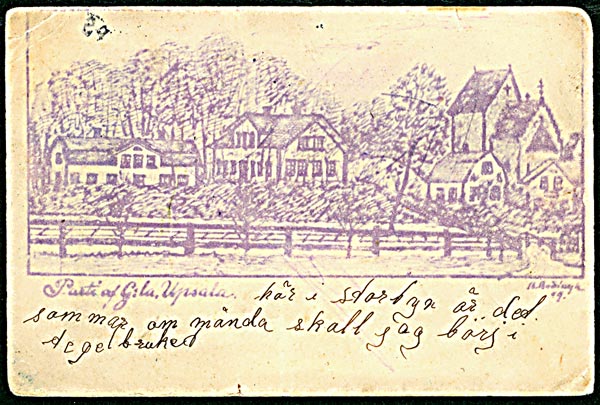 Parti af Gila, Upsala.
här i storbyn är det
sommar om månda skall jag börj i
tegelbruket